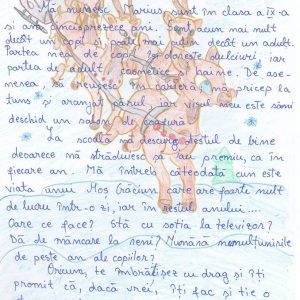 Mă numesc Marius, sunt în clasa a IX-a
și am cincisprezece ani. acum mai mult
decât un copil și poate mai puțin decât un adult.
Partea mea de copil își dorește dulciuri iar
partea de adult cosmetice haine. De ase-
menea să reușesc în carieră mă pricep la
tuns și aranjat părul iar visul meu este sămi
deschid un salon de coafură
La școală mă descurg destul de bine
deoarece mă străduiesc să iau premiu, ca în
fiecare an. Mă întreb câteodată cum este
viața unui Moș Crăciun care are foarte mult
de lucru într-o zi, iar în restul anului....
Care ce face? Stă cu soția la televizor?
Dă de mâncare la reni? Numără nemulțumirile
de peste an ale copiilor?
Oricum, te îmbrățișez cu drag și îți
promit că, dacă vrei, îți fac și ție o